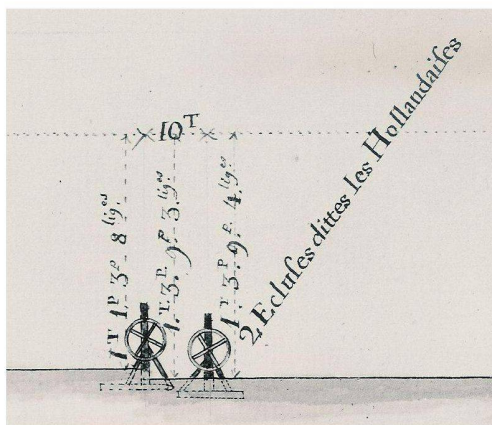 10^T
1^T 1^P 3^P 8^lig.es
1.^T 3.^P 9^P 3.^lig.es
1^T 3.^P 9.^P 4.^lig.es
2 Ecluſes dittes les Hollandaiſes